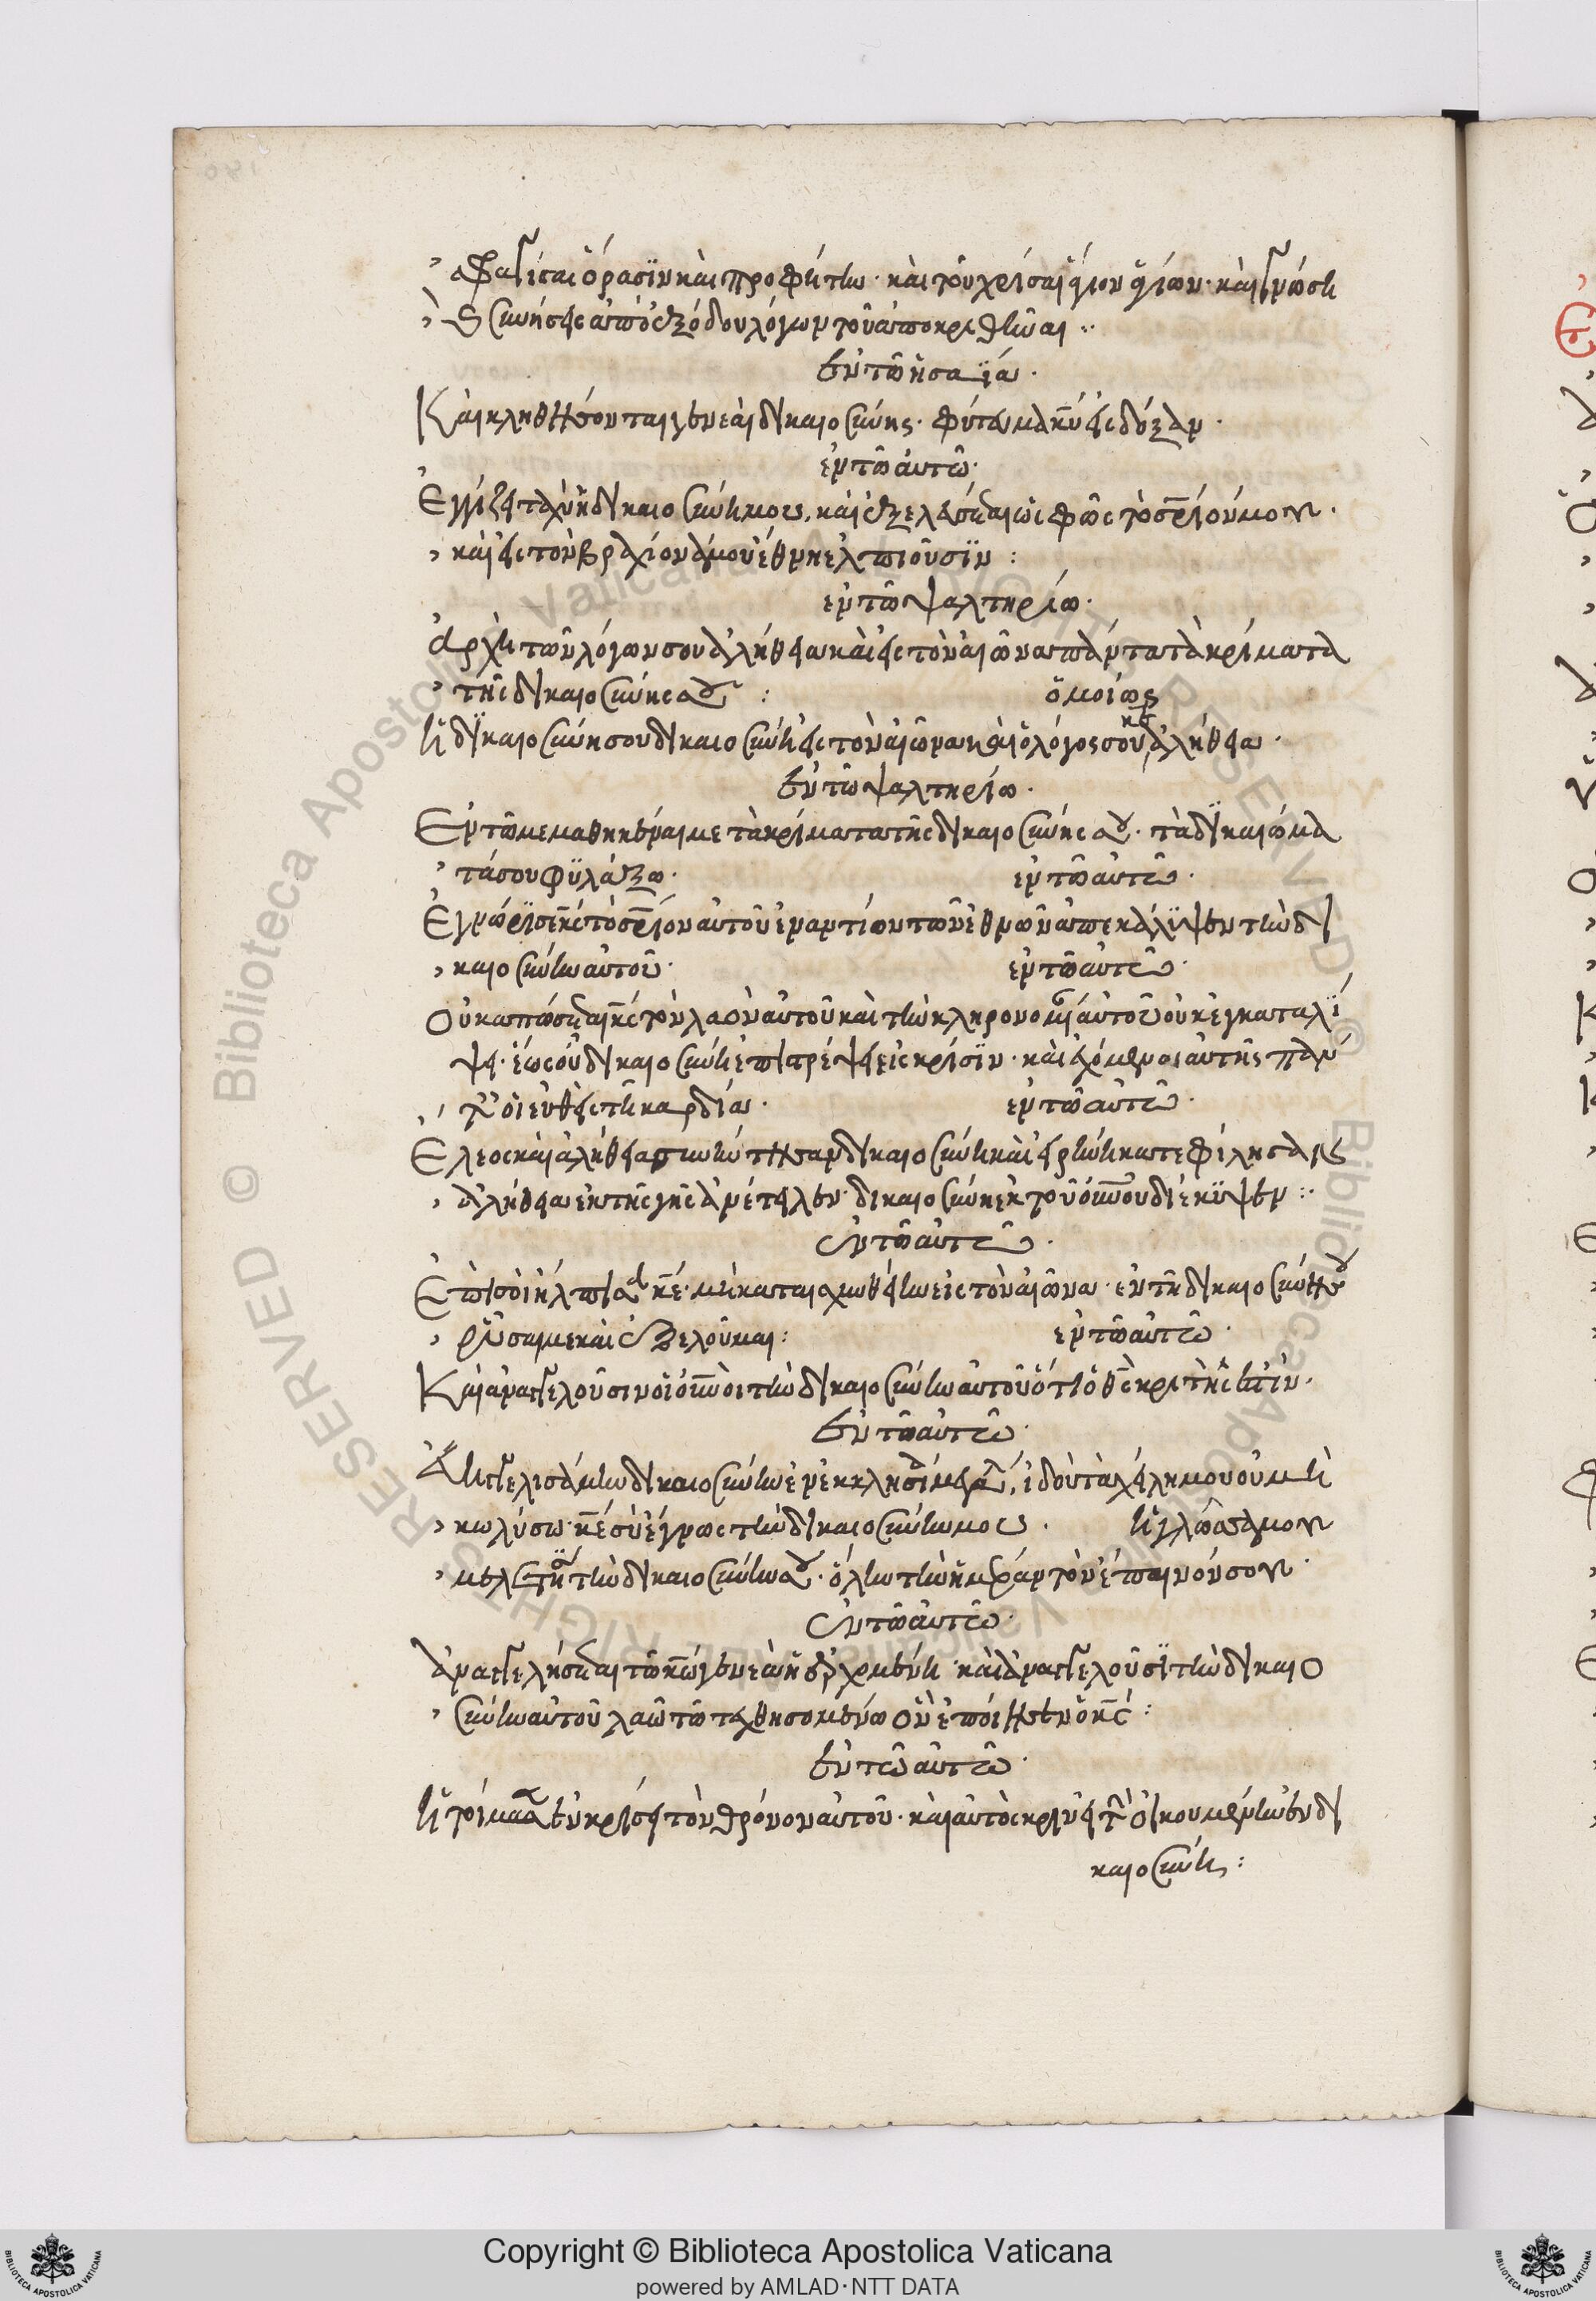 σφραγίσαι ὅρασϊν καὶ προφήτην· καὶ τοῦ χρίσαι ἅγιον ἁγίων· καὶ γνώση
καὶ συνήσεις ἀπὸ ἐξόδου λόγων τοῦ ἀποκριθῆναι ..
ἐν τῶ ἡσαΐα·
Καὶ κληθήσονται γενεαὶ δικαιοσύνης· φύτευμα κυ εἰς δόξαν·
ἐν τῶ αὐτῶ·
Ἐγγίζει ταχὺ ἡ δικαιοσύνη μου, καὶ ἐξελεύσεται ὡς φῶς τὸ σριόν μου·
καὶ εἰς τὸν βραχίονά μου ἔθνη ἐλπιοῦσϊν :
ἐν τῶ ψαλτηρίω·
Ἀρχὴ τῶν λόγων σου ἀλήθεια καὶ εἰς τὸν αἰῶνα πάντα τὰ κρίματα
τῆς δικαιοσύνης σου :
ὁμοίως
Ἡ δικαιοσύνη σου δικαιοσύνη εἰς τὸν αἰῶνα καὶ ὁ λόγος σου κε ἀλήθεια·
ἐν τῶ ψαλτηρίω·
Ἐν τῶ μεμαθηκέναι με τὰ κρίματα τῆς δικαιοσύνης σου· τὰ δικαιώμα
τά σου φϋλάξω·
ἐν τῶ αὐτῶ·
Ἐγνώρϊσε κς τὸ σριον αὐτοῦ ἐναντίον τῶν ἐθνῶν ἀπεκάλϋψεν τὴν δι
καιοσύνην αὐτοῦ·
ἐν τῶ αὐτῶ·
Οὐκ ἀπώσεται κς τὸν λαὸν αὐτοῦ καὶ τὴν κληρονομίαν αὐτοῦ οὐκ ἐγκαταλί
ψει· ἕως οὗ δικαιοσύνη ἐπιστρέψει εἰς κρίσϊν· καὶ ἐχόμενοι αὐτῆς πάν
τες οἱ εὐθεῖς τῆ καρδία·
ἐν τῶ αὐτῶ·
Ἔλεος καὶ ἀλήθεια συνήντησαν δικαιοσύνη καὶ εἰρήνη κατεφίλησαν
ἀλήθεια ἐκ τῆς γῆς ἀνέτειλεν· δικαιοσύνη ἐκ τοῦ οὐνου διέκϋψεν :
ἐν τῶ αὐτῶ·
Ἐπὶ σοὶ ἤλπισα κε· μὴ καταισχυνθείην εἰς τὸν αἰῶνα· ἐν τῆ δικαιοσύνη σου
ῥῦσαί με καὶ ἐξελοῦ μαι :
ἐν τῶ αὐτῶ·
Καὶ ἀναγγελοῦσιν οἱ οὐνοὶ τὴν δικαιοσύνην αὐτοῦ ὅτι ὁ θς κριτής ἐστίν·
ἐν τῶ αὐτῶ·
Εὐηγγελισάμην δικαιοσύνην ἐν ἐκκλησία μεγάλη, ἰδοὺ τὰ χείλη μου οὐ μὴ
κωλύσω· κε σὺ ἔγνως τὴν δικαιοσύνην μου·
ἡ γλῶσσά μου
μελετήσει τὴν δικαιοσύνην σου· ὅλην τὴν ἡμέραν τὸν ἔπαινόν σου·
ἐν τῶ αὐτῶ·
Ἀναγγελήσεται τῶ κω γενεὰ ἡ ἐρχομένη· καὶ ἀναγγελοῦσϊ τὴν δικαιο
σύνην αὐτοῦ λαῶ τῶ τεχθησομένω ὃν ἐποίησεν ὁ κς :
ἐν τῶ αὐτῶ·
Ἡτοίμασεν ἐν κρίσει τὸν θρόνον αὐτοῦ· καὶ αὐτὸς κρινεῖ τὴν οἰκουμένην ἐν δι
καιοσύνη :
Copyright © Biblioteca Apostolica Vaticana
powered by AMLAD·NTT DATA